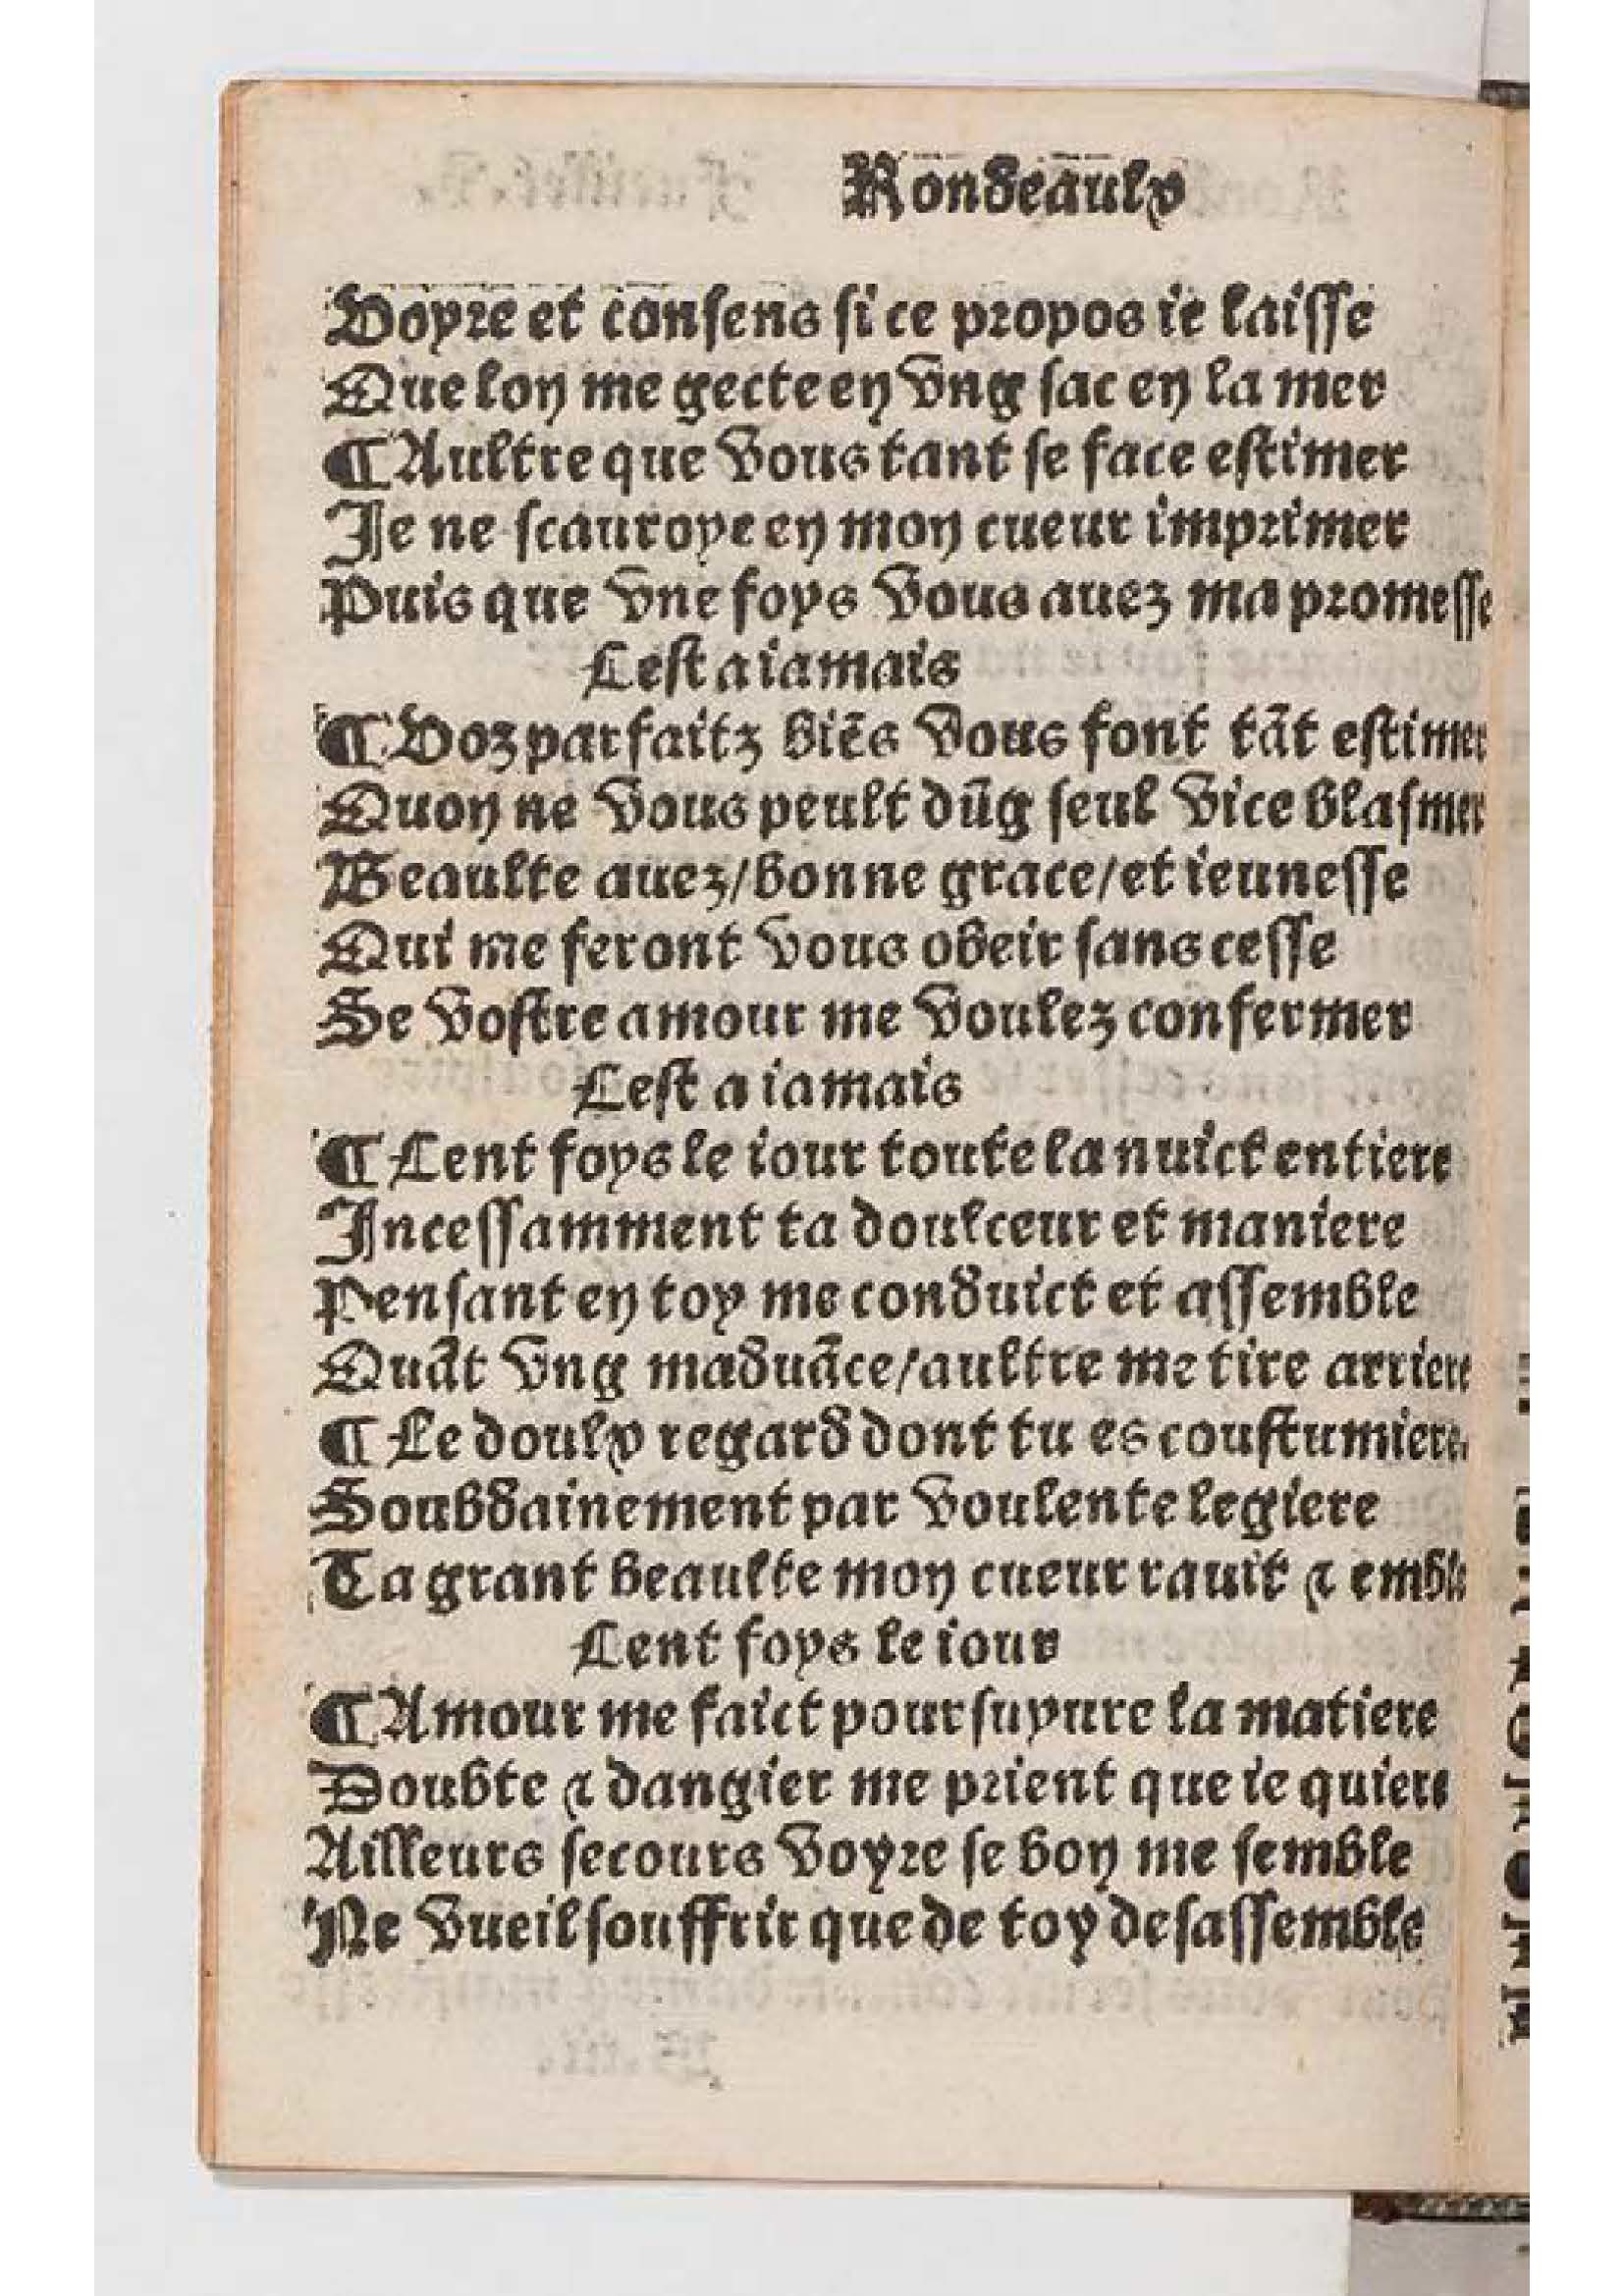 Rondeaulx
Voyre et consens si ce propos ie laisse
Que lon me gecte en vng sac en la mer
¶ Aultre que vous tant se face estimer
Je ne scauroye en mon cueur imprimer
Puis que vne foys vous auez ma promesse
Cest a iamais
¶ Voz parfaitz biẽs vous font tãt estimer
Quon ne vous peult dũg seul vice blasmer
Beaulte auez/bonne grace/et ieunesse
Qui me feront vous obeir sans cesse
Se vostre amour me voulez confermer
Cest a iamais
¶ Cent foys le iour toute la nuict entiere
Incessamment ta doulceur et maniere
Pensant en toy me conduict et assemble
Quãt vng maduãce/aultre me tire arriere
¶ Le doulx regard dont tu es coustumiere
Soubdainement par voulente legiere
Ta grant beaulte mon cueur rauit ⁊ emble
Cent foys le iour
¶ Amour me faict poursuyure la matiere
Doubte ⁊ dangier me prient que ie quiere
Ailleurs secours voyre se bon me semble
Ne vueil souffrir que de toy desassemble